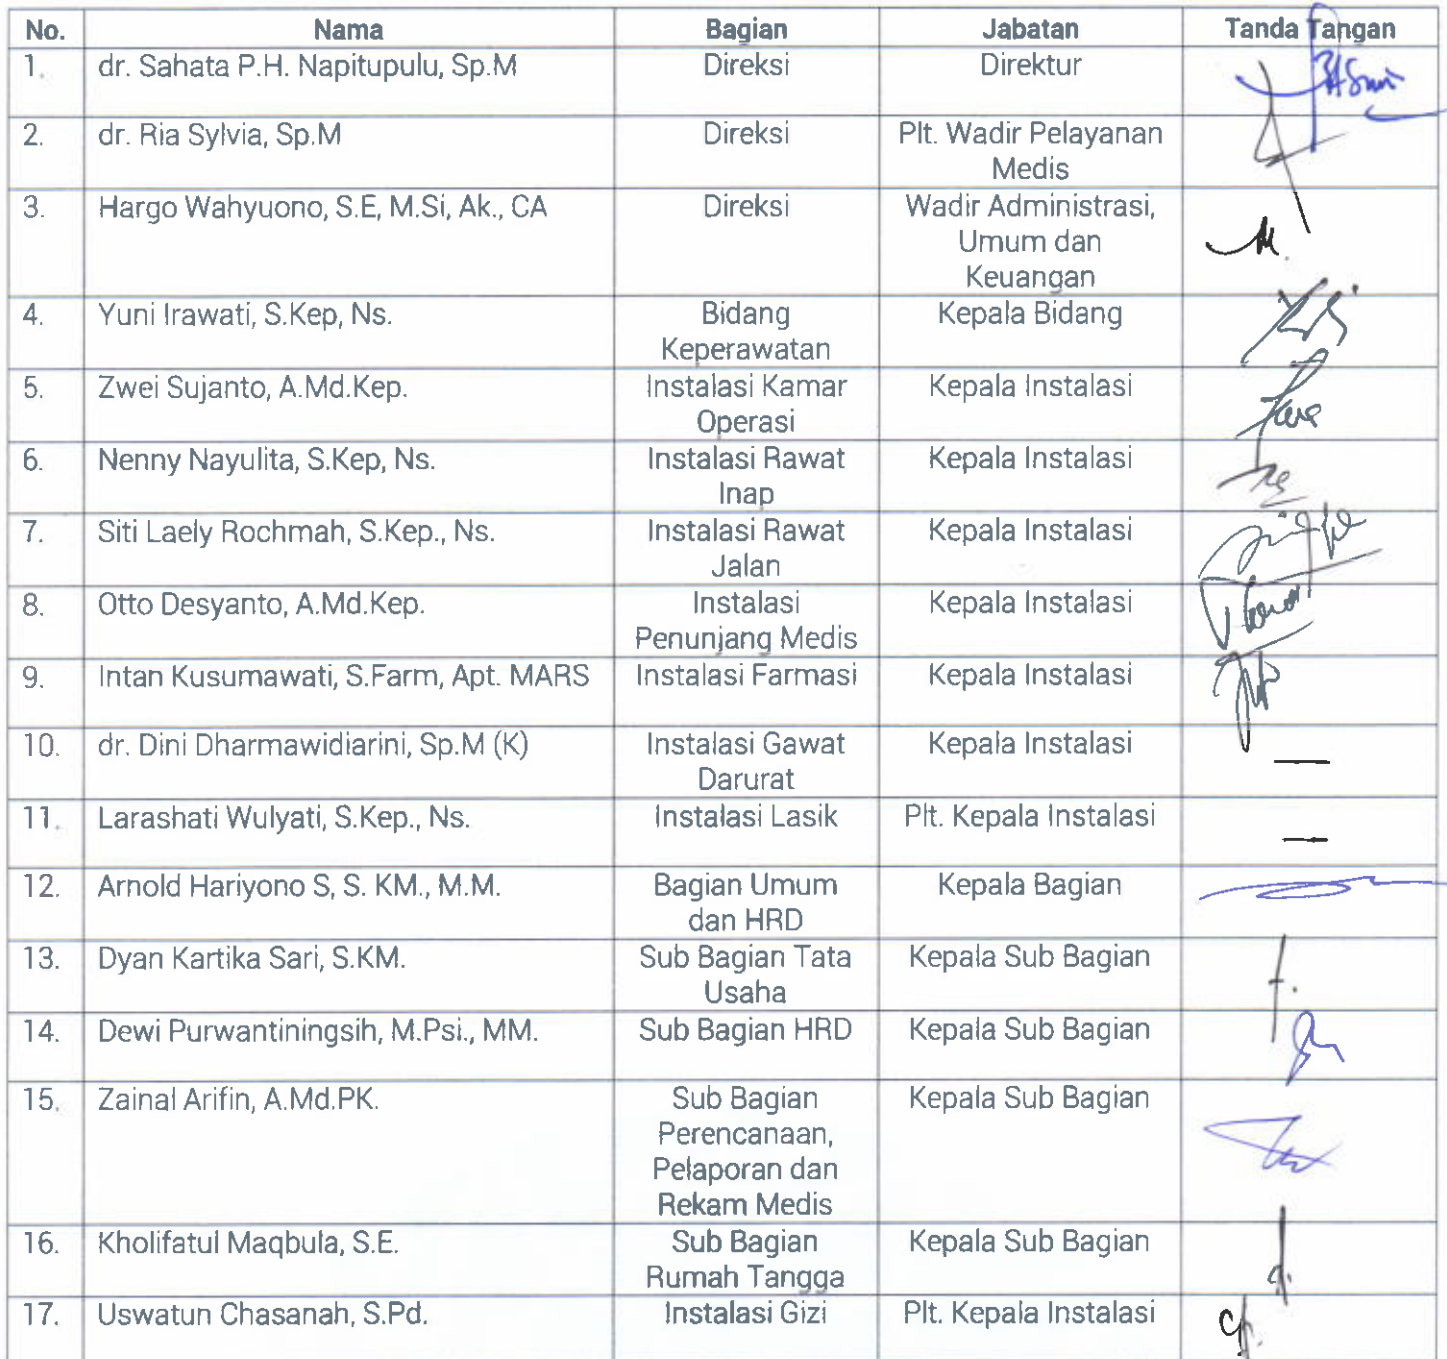 No. Nama Bagian Jabatan Tanda Tangan
1. dr. Sahata P.H. Napitupulu, Sp.M Direksi Direktur
2. dr. Ria Sylvia, Sp.M Direksi Plt. Wadir Pelayanan
Medis
3. Hargo Wahyuono, S.E, M.Si, Ak., CA Direksi Wadir Administrasi,
Umum dan
Keuangan
4. Yuni Irawati, S.Kep, Ns. Bidang Kepala Bidang
Keperawatan
5. Zwei Sujanto, A.Md.Kep. Instalasi Kamar Kepala Instalasi
Operasi
6. Nenny Nayulita, S.Kep, Ns. Instalasi Rawat Kepala Instalasi
Inap
7. Siti Laely Rochmah, S.Kep., Ns. Instalasi Rawat Kepala Instalasi
Jalan
8. Otto Desyanto, A.Md.Kep. Instalasi Kepala Instalasi
Penunjang Medis
9. Intan Kusumawati, S.Farm, Apt. MARS Instalasi Farmasi Kepala Instalasi
10. dr. Dini Dharmawidiarini, Sp.M (K) Instalasi Gawat Kepala Instalasi
Darurat —
11. Larashati Wulyati, S.Kep., Ns. Instalasi Lasik Plt. Kepala Instalasi
—
12. Arnold Hariyono S, S. KM., M.M. Bagian Umum Kepala Bagian
dan HRD
13. Dyan Kartika Sari, S.KM. Sub Bagian Tata Kepala Sub Bagian
Usaha
14. Dewi Purwantiningsih, M.Psi., MM. Sub Bagian HRD Kepala Sub Bagian
15. Zainal Arifin, A.Md.PK. Sub Bagian Kepala Sub Bagian
Perencanaan,
Pelaporan dan
Rekam Medis
16. Kholifatul Maqbula, S.E. Sub Bagian Kepala Sub Bagian
Rumah Tangga
17. Uswatun Chasanah, S.Pd. Instalasi Gizi Plt. Kepala Instalasi